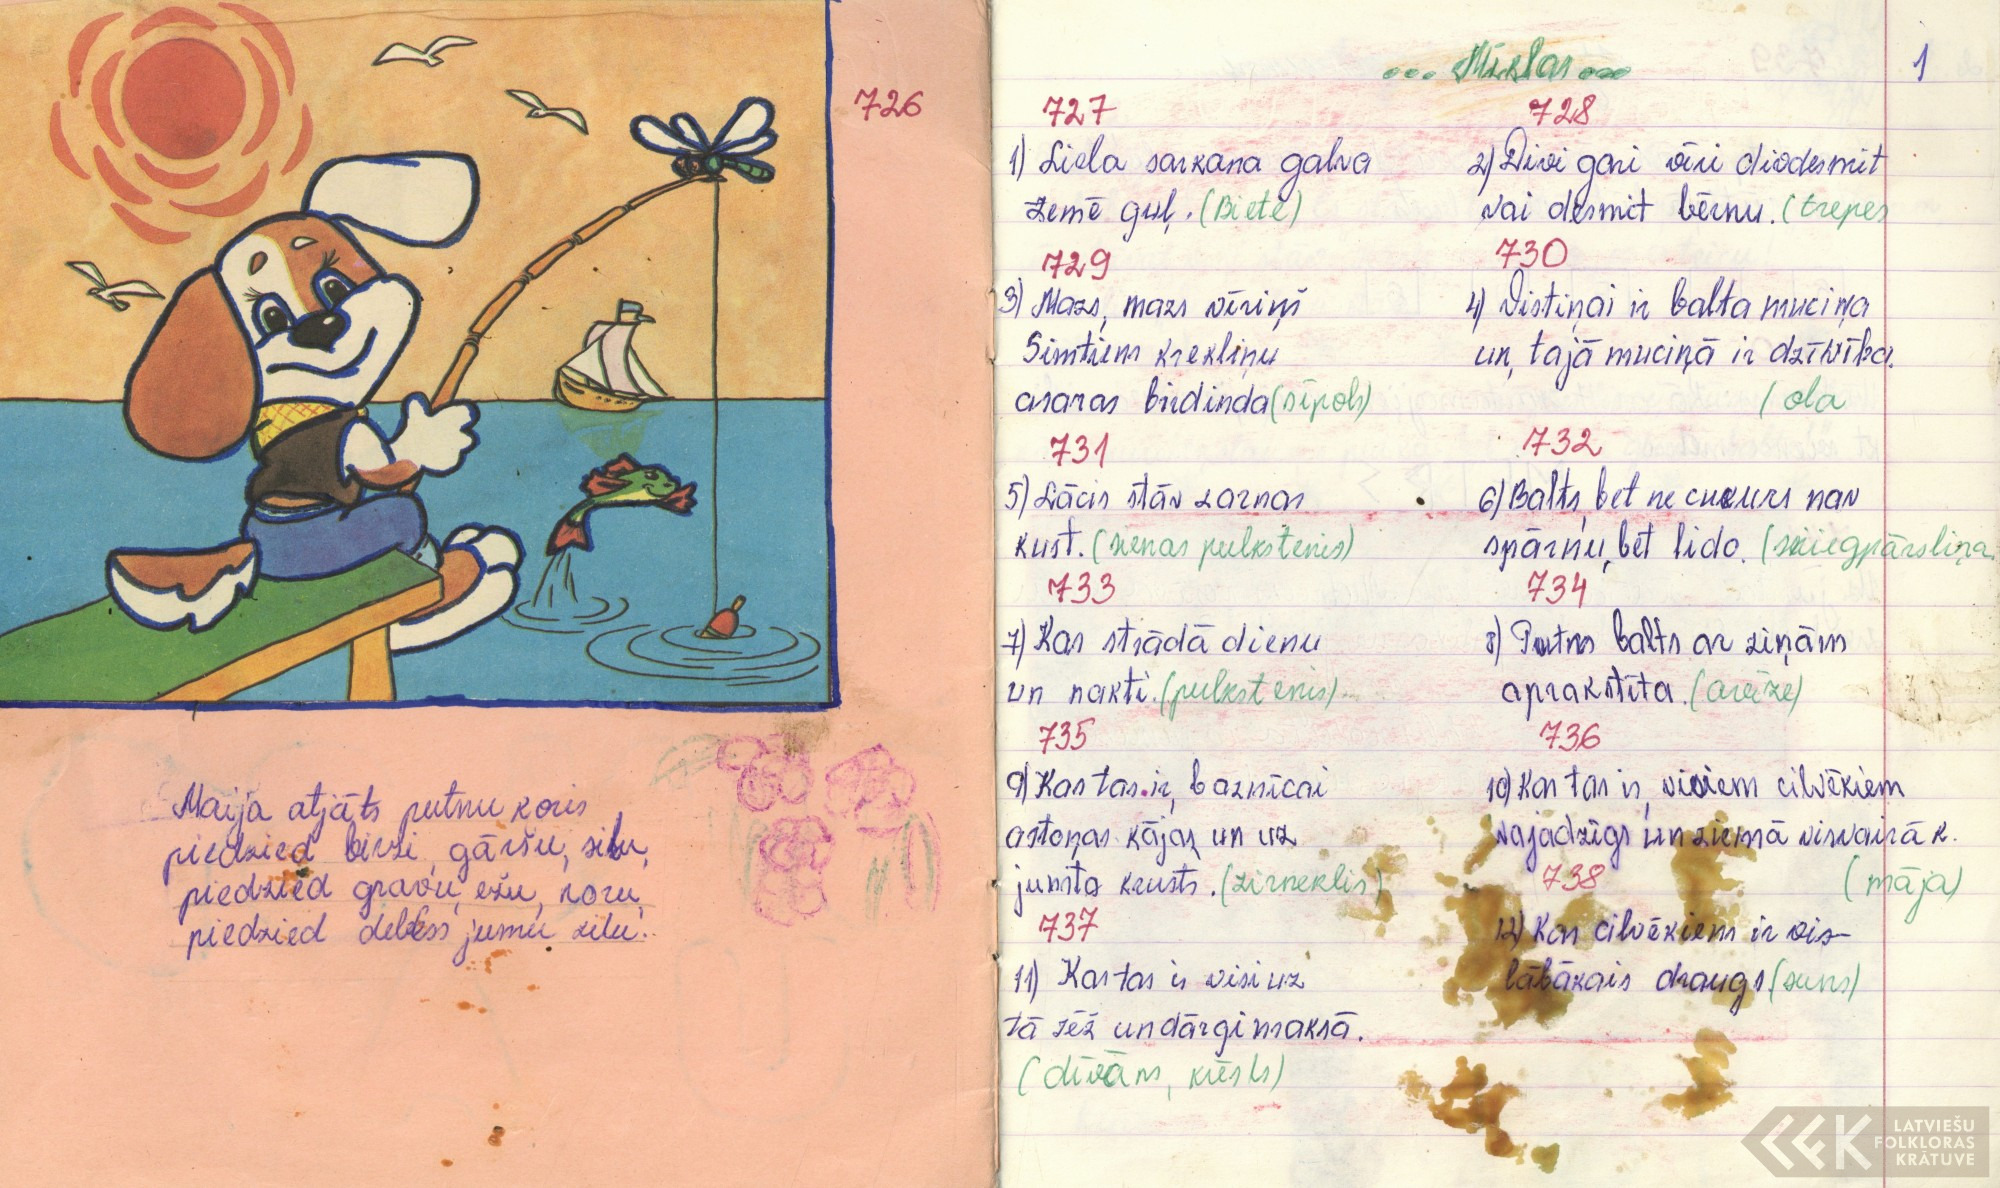 726
Maija atjāts putnu koris
piedzied birzi, gāršu, silu,
piedzied gravu, ežu, noru,
piedzied debess jumu zilu.
1
... Mīklas ...
727
1) Liela sarkana galva
zemē guļ. (Biete)
728
2) Divi gari vīri divdesmit
vai desmit bērnu. (trepes
729
3) Mazs, mazs vīriņš
Simtiem krekliņu
asaras birdinda (sīpols)
730
4) Vistiņai ir balta muciņa
un, tajā muciņā ir dzīvība.
(ola
731
5) Lācis stāv zarnas
kust. (sienas pulkstenis)
732
6) Balts, bet ne cukurs nav
spārnu, bet lido. (sniegpārsliņa
733
7) Kas strādā dienu
un nakti. (pulkstenis)
734
8) Putns balts ar ziņām
aprakstīta. (avīze)
735
9) Kas tas ir, baznīcai
astoņas kājas un uz
jumta krusts. (zirneklis)
736
10) Kas tas ir, visiem cilvēkiem
vajadzīgs un ziemā visvairāk.
(māja)
737
11) Kas tas ir visi uz
tā sēž un dārgi maksā.
(dīvāns, krēsls)
738
12) Kas cilvēkiem ir vis-
lābākais draugs (suns)
LATVIEŠU
FOLKLORAS
KRĀTUVE